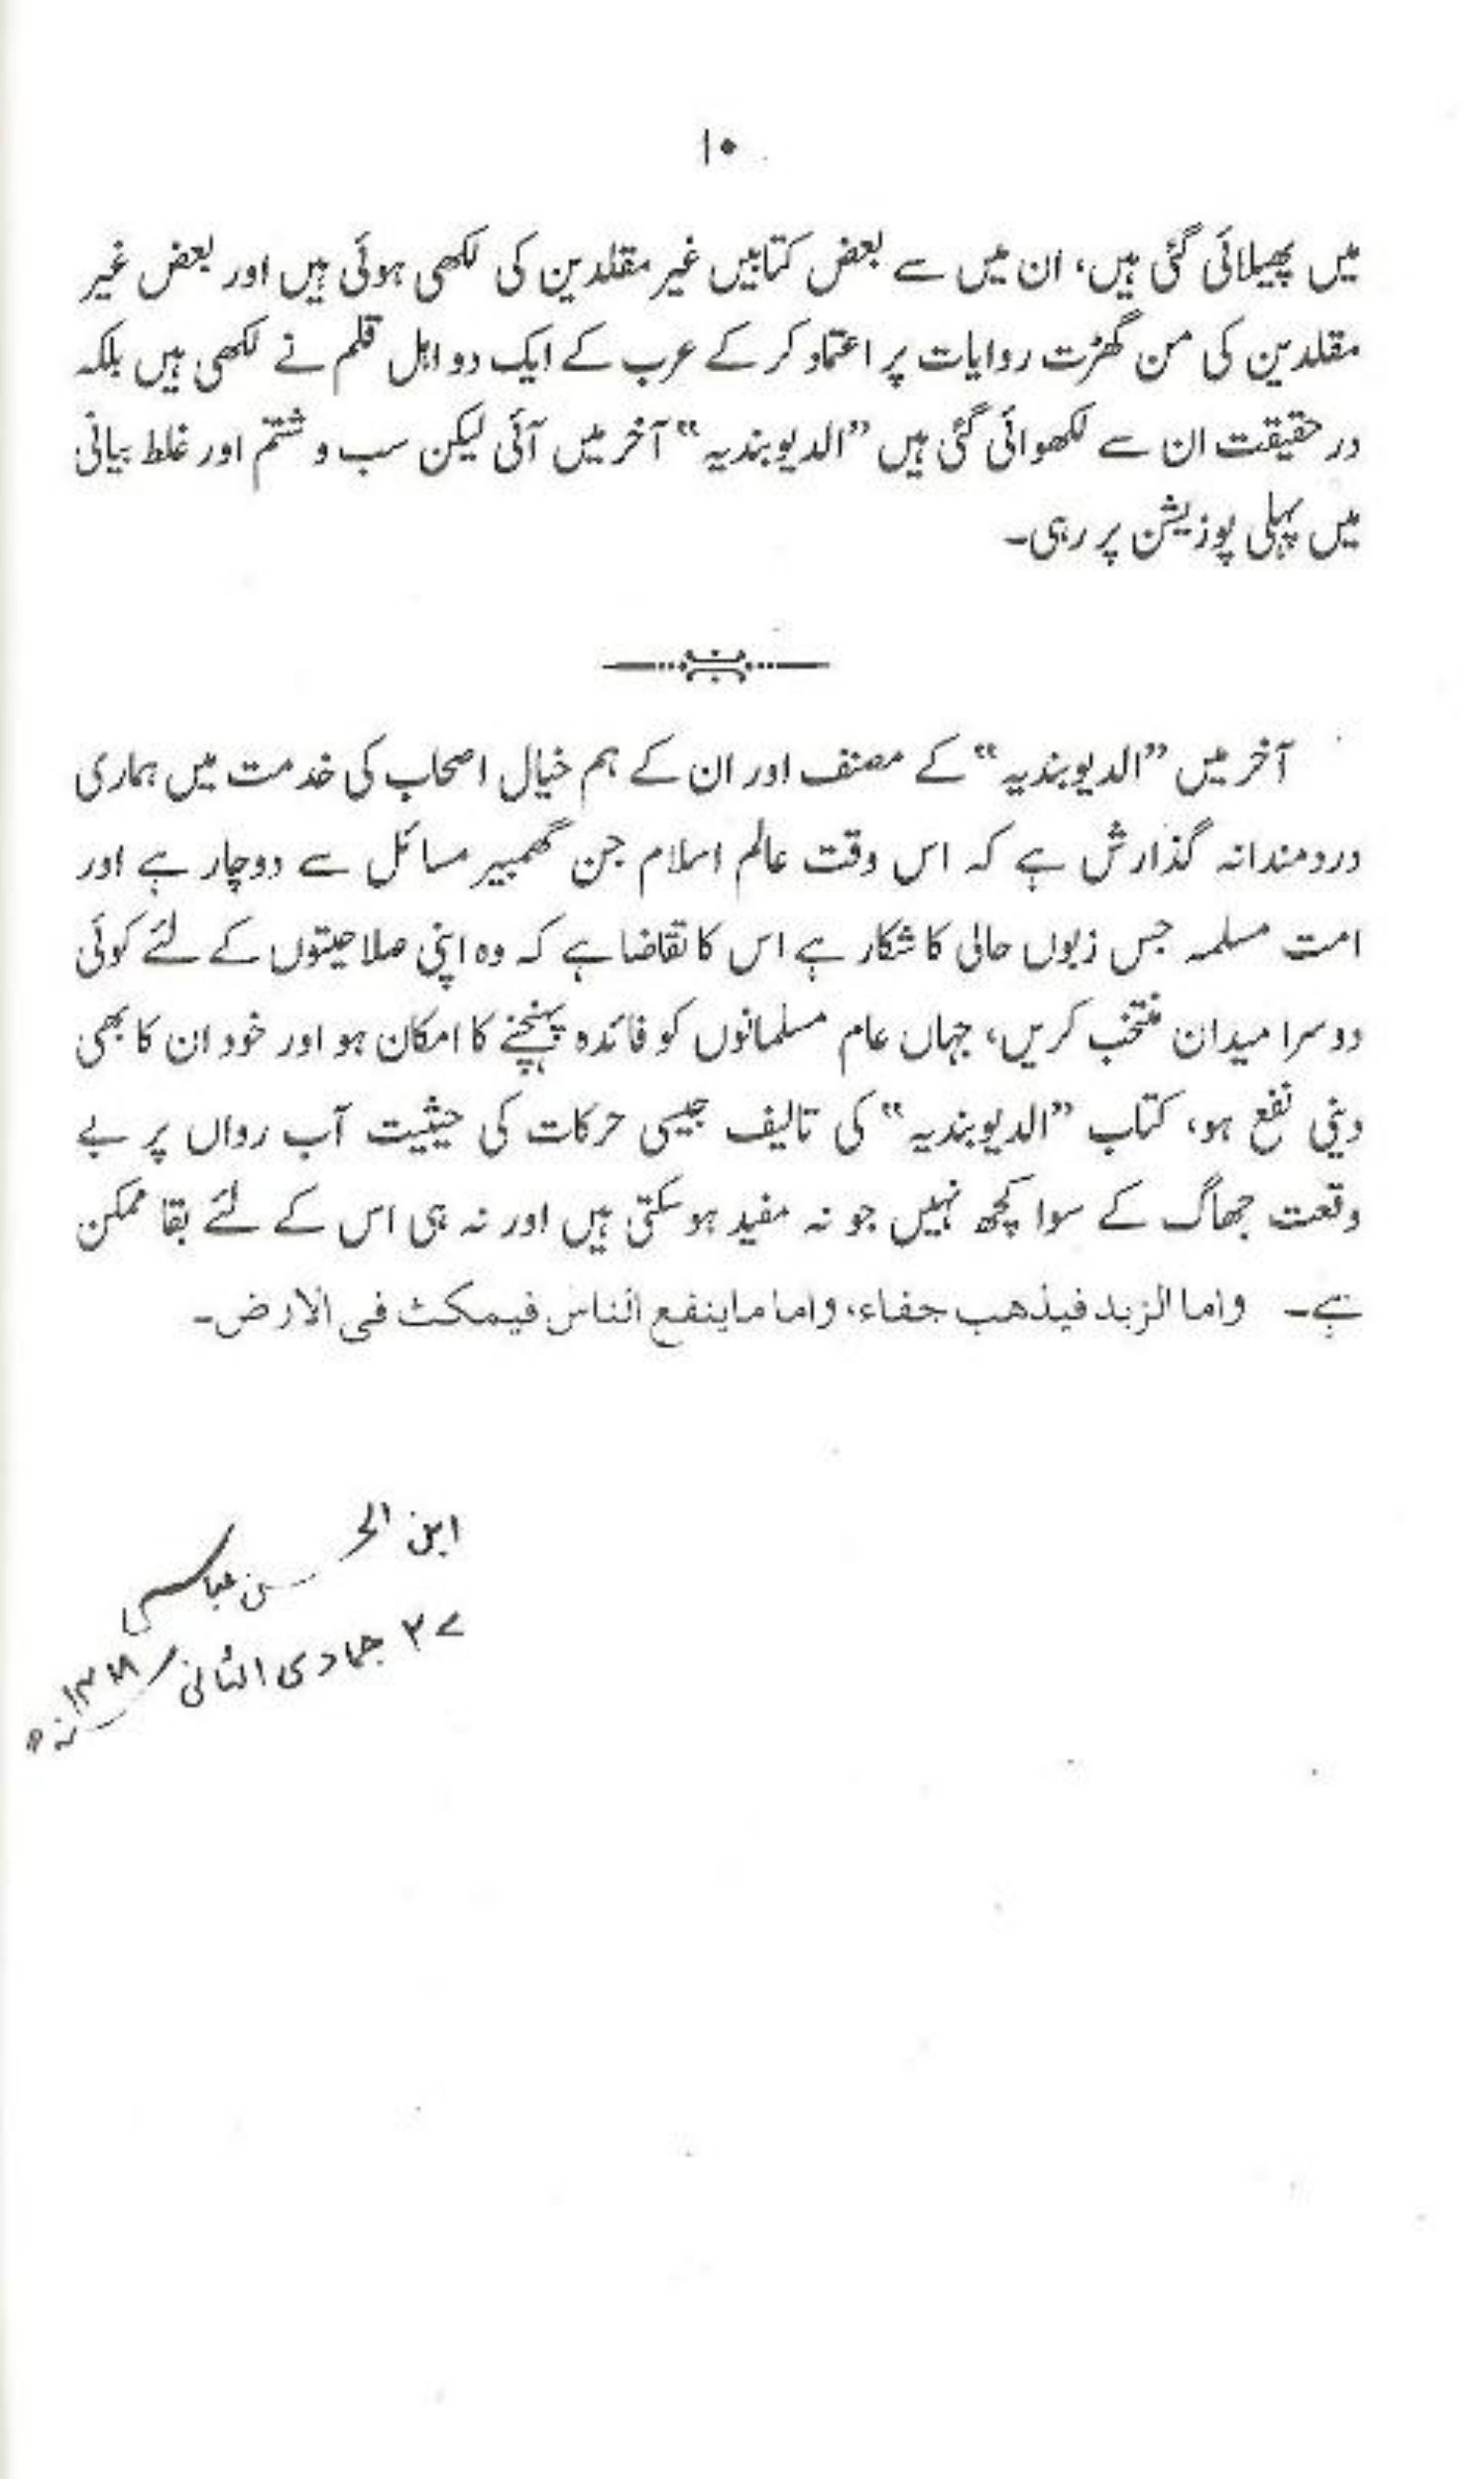 ۱۰
میں پھیلائی گئی ہیں، ان میں سے بعض کتابیں غیر مقلدین کی لکھی ہوئی ہیں اور بعض غیر
مقلدین کی من گھڑت روایات پر اعتماد کر کے عرب کے ایک دو اہل قلم نے لکھی ہیں بلکہ
در حقیقت ان سے لکھوائی گئی ہیں ”الدیوبندیہ“ آخر میں آئی لیکن سب و شتم اور غلط بیانی
میں پہلی پوزیشن پر رہی۔
آخر میں ”الدیوبندیہ“ کے مصنف اور ان کے ہم خیال اصحاب کی خدمت میں ہماری
دردمندانہ گذارش ہے کہ اس وقت عالم اسلام جن گھمبیر مسائل سے دوچار ہے اور
امت مسلمہ جس زبوں حالی کا شکار ہے اس کا تقاضا ہے کہ وہ اپنی صلاحیتوں کے لئے کوئی
دوسرا میدان منتخب کریں، جہاں عام مسلمانوں کو فائدہ پہنچنے کا امکان ہو اور خود ان کا بھی
دینی نفع ہو، کتاب ”الدیوبندیہ“ کی تالیف جیسی حرکات کی حیثیت آب رواں پر بے
وقعت جھاگ کے سوا کچھ نہیں جو نہ مفید ہو سکتی ہیں اور نہ ہی اس کے لئے بقا ممکن
ہے۔ واما الزبد فیذهب جفاء، واما ما ینفع الناس فیمکث فی الارض۔
ابن الحسن عباسی
۲۷ جمادی الثانی